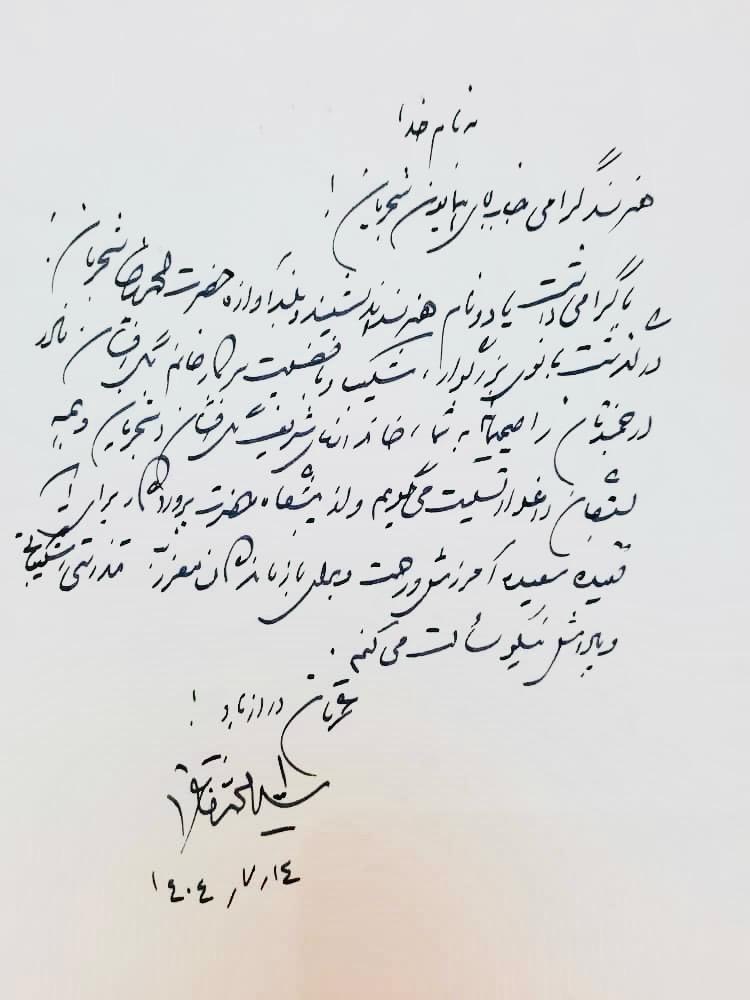 به نام خدا
هنرمند گرامی جناب آقای همایون شجریان!
با گرامی‌داشت یاد و نام هنرمند اندیشمند و بلندآوازه حضرت محمدرضا شجریان!
درگذشت بانوی بزرگوار، شکیبا و بافضیلت سرکار خانم گل‌افشان مادر
ارجمندتان را صمیمانه به شما، خاندانهای شریف گل‌افشان و شجریان و همه
بستگان داغدار تسلیت می‌گویم و از پیشگاه حضرت پروردگار برای آن
فقیده سعیده آمرزش و رحمت و برای بازماندگان معزز تندرستی، شکیبایی
و پاداش نیکو مسألت می‌کنم.
عمرتان دراز باد!
سید محمد خاتمی
۱۴۰۴/۷/۱۴